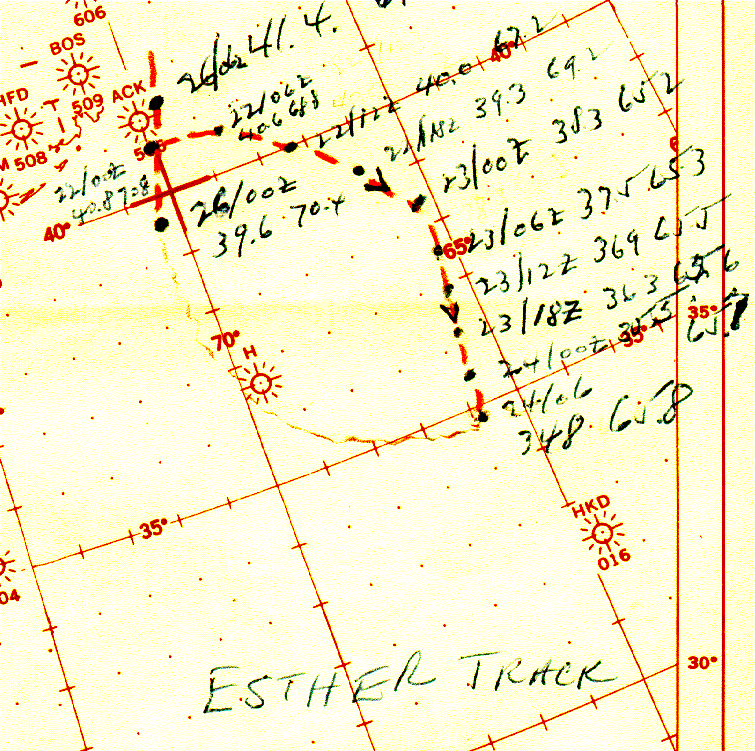 606
BOS
509
ACK
HFD
508
26/06Z 41.4
22/06Z
40.6 68.8
22/12Z 40.0
40°
22/18Z 39.3 69.2
23/00Z 38.3 65.2
22/00Z
40.8 70.8
40°
26/00Z
39.6 70.4
23/06Z 37.5 65.3
65°
23/12Z 369 65.5
23/18Z 363
35°
24/00Z
35°
24/06
348 65.8
70°
H
35°
HKD
016
04
30°
ESTHER TRACK